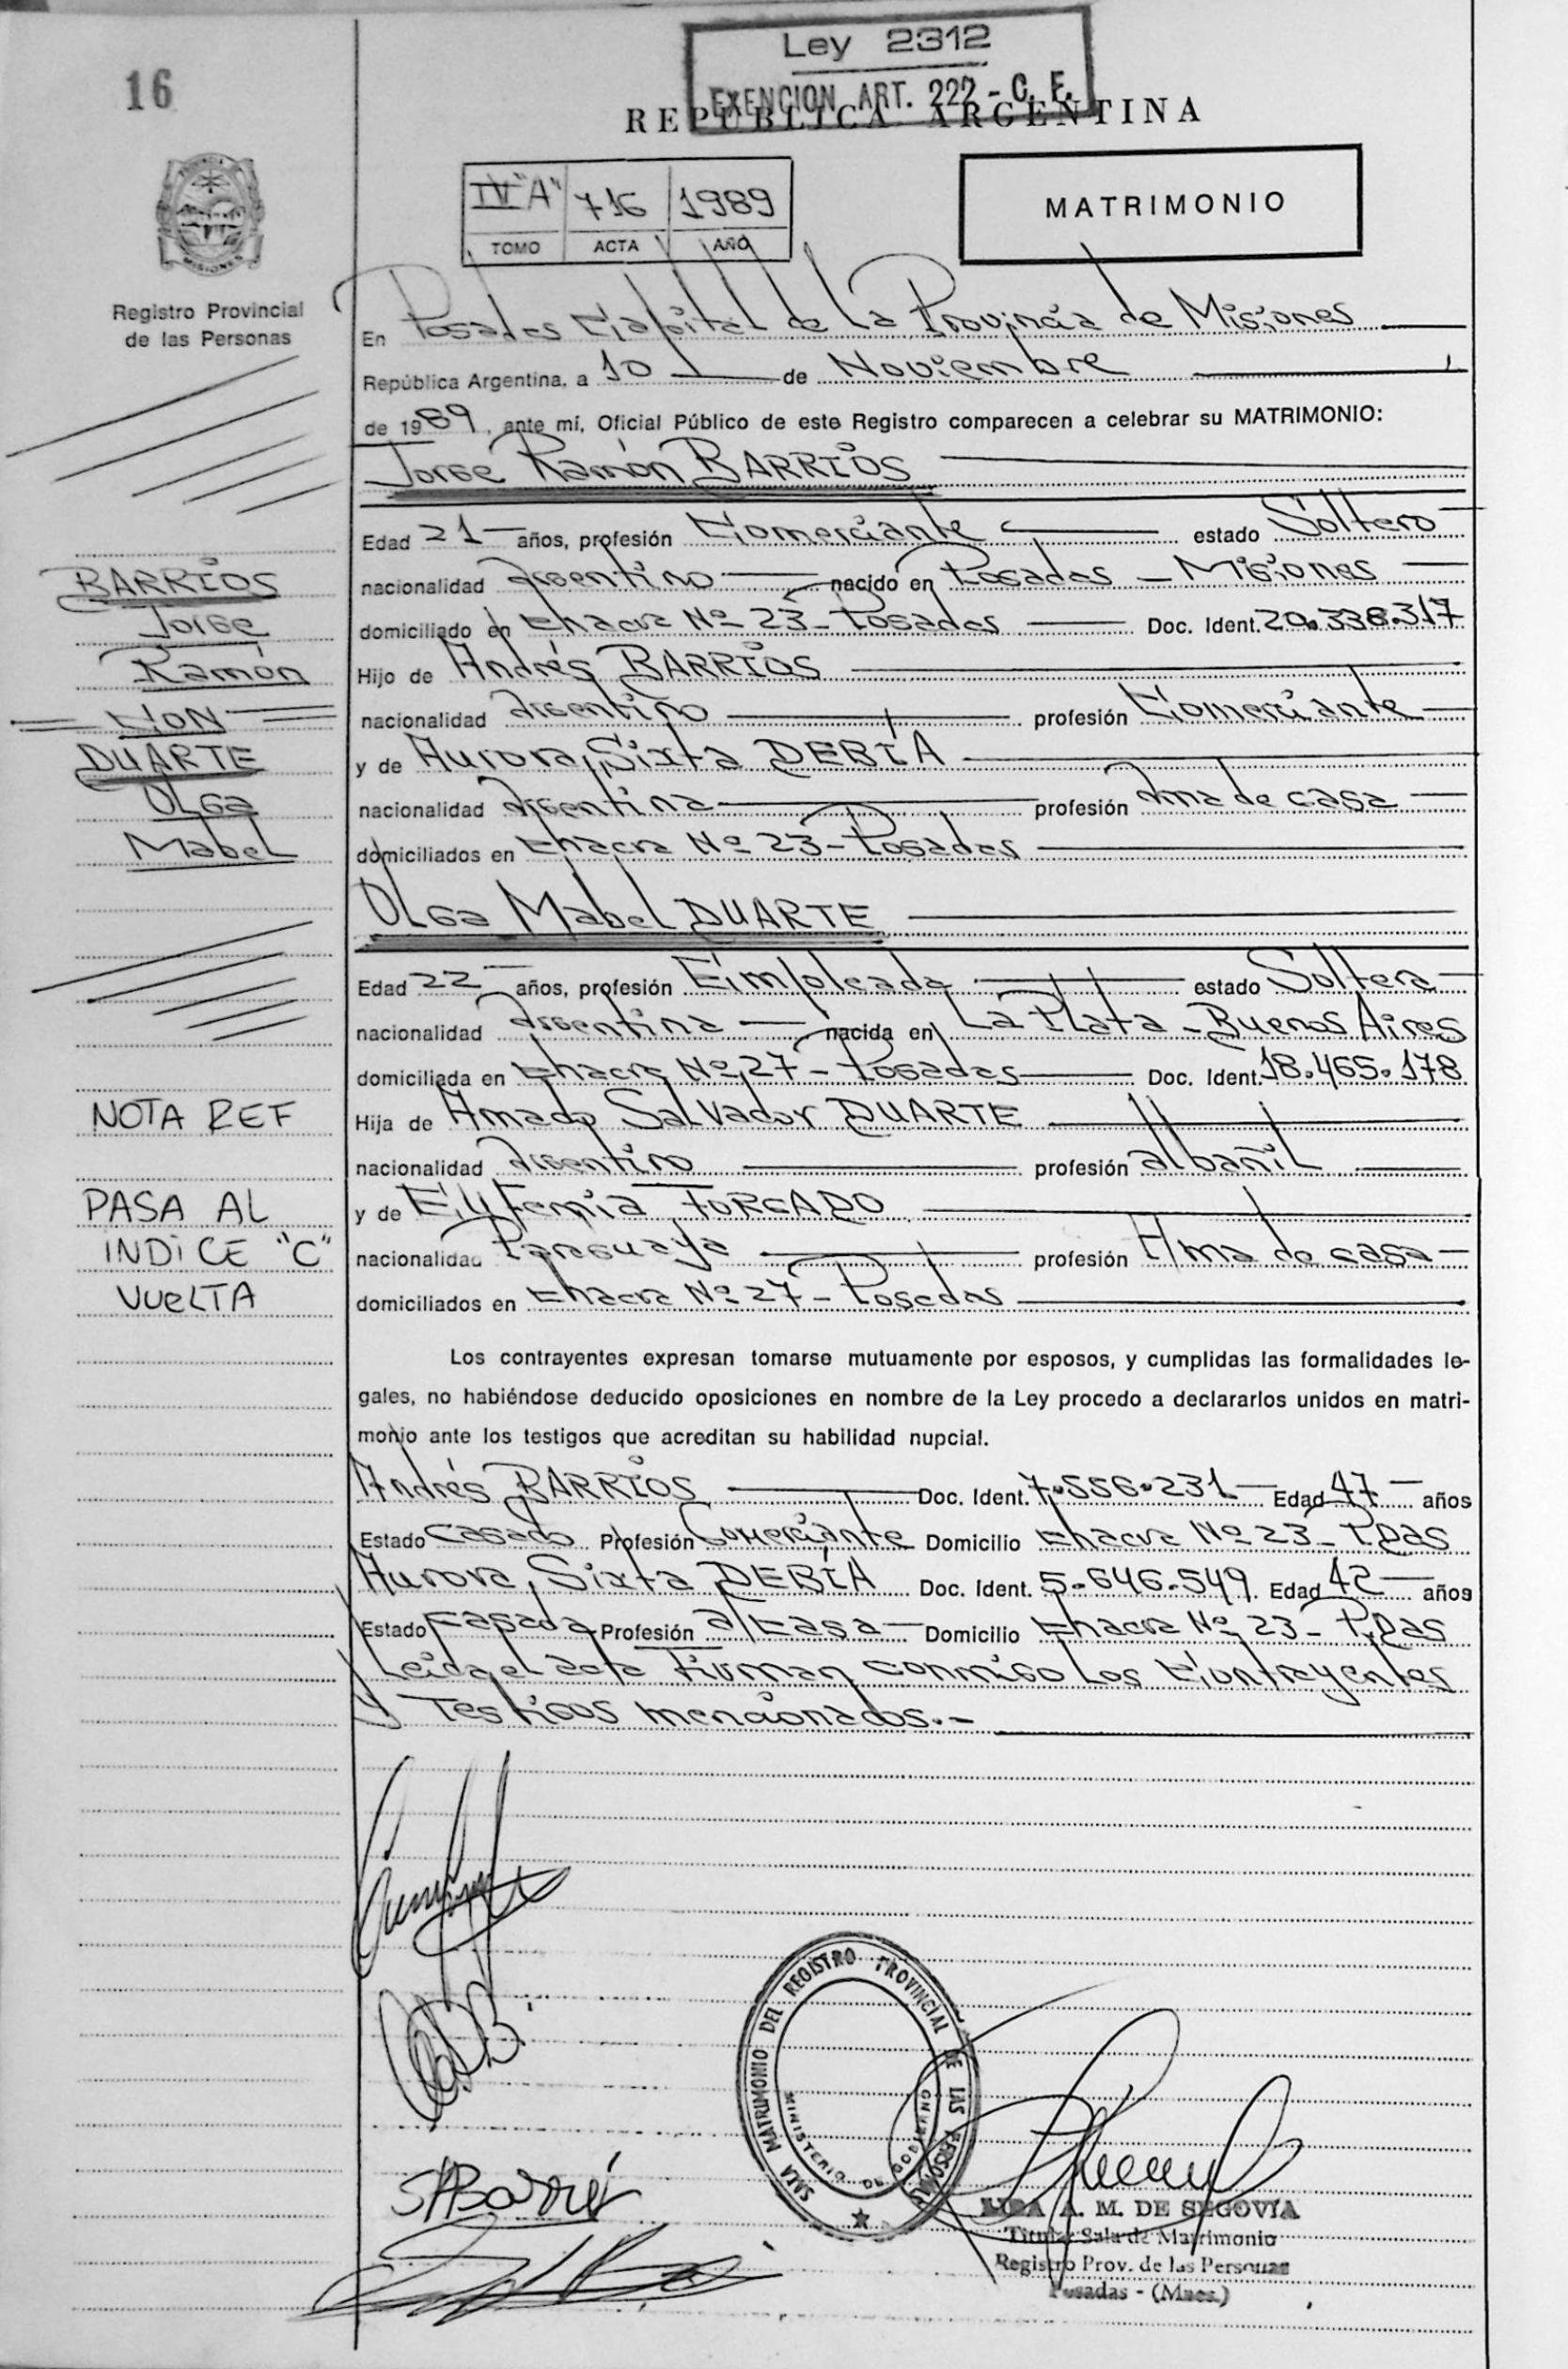 16
Ley 2312
EXENCION ART. 222 - C. F.
REPUBLICA ARGENTINA
IV "A" 716 1989
TOMO ACTA AÑO
MATRIMONIO
PROVINCIA
MISIONES
Registro Provincial
de las Personas
En Posadas Capital de La Provincia de Misiones
República Argentina, a 10 de Noviembre
de 1989, ante mí, Oficial Público de este Registro comparecen a celebrar su MATRIMONIO:
Jorge Ramón BARRIOS
Edad 21 años, profesión Comerciante estado Soltero
nacionalidad Argentino nacido en Posadas - Misiones
domiciliado en Chacra Nº 23 - Posadas Doc. Ident. 20.338.317
Hijo de Andrés BARRIOS
nacionalidad Argentino profesión Comerciante
y de Aurora Sixta DEBIA
nacionalidad Argentina profesión Ama de casa
domiciliados en Chacra Nº 23 - Posadas
Olga Mabel DUARTE
Edad 22 años, profesión Empleada estado Soltera
nacionalidad Argentina nacida en La Plata - Buenos Aires
domiciliada en Chacra Nº 27 - Posadas Doc. Ident. 18.465.178
Hija de Amado Salvador DUARTE
nacionalidad Argentino profesión albañil
y de Eufemia FORGADO
nacionalidad Paraguaya profesión Ama de casa
domiciliados en Chacra Nº 27 - Posadas
Los contrayentes expresan tomarse mutuamente por esposos, y cumplidas las formalidades le-
gales, no habiéndose deducido oposiciones en nombre de la Ley procedo a declararlos unidos en matri-
monio ante los testigos que acreditan su habilidad nupcial.
Andrés BARRIOS Doc. Ident. 7.556.231 Edad 47 años
Estado Casado Profesión Comerciante Domicilio Chacra Nº 23 - Pdas
Aurora Sixta DEBIA Doc. Ident. 5.646.549 Edad 42 años
Estado Casada Profesión a/casa Domicilio Chacra Nº 23 - Pdas
Leida el acta Firman conmigo Los Contrayentes
y Testigos mencionados.-
BARRIOS
Jorge
Ramón
CON
DUARTE
Olga
Mabel
NOTA REF
PASA AL
INDICE "C"
VUELTA
SALA MATRIMONIO DEL REGISTRO PROVINCIAL DE LAS PERSONAS
MINISTERIO DE GOBIERNO
A. M. DE SEGOVIA
Titular Sala de Matrimonio
Registro Prov. de las Personas
Posadas - (Mnes.)